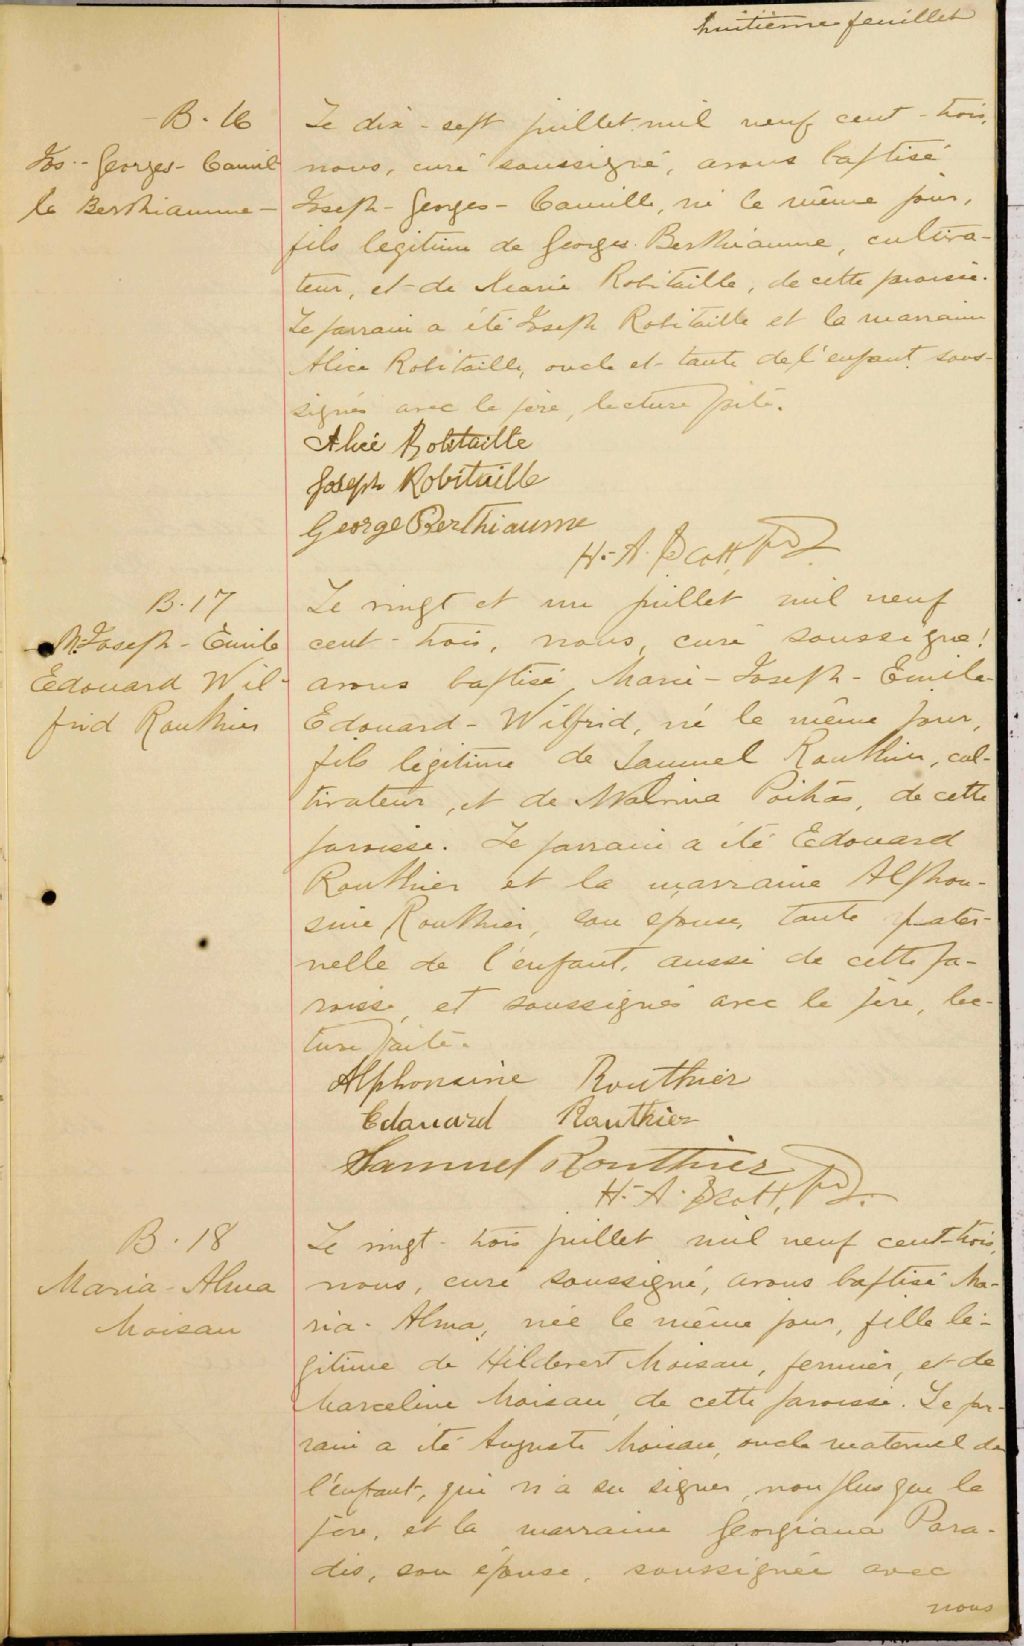 huitième feuillet
B. 16
Jos.-Georges-Camil
le Berthiaume
Le dix-sept juillet mil neuf cent-trois,
nous, curé soussigné, avons baptisé
Joseph-Georges-Camille, né le même jour,
fils légitime de Georges Berthiaume, cultiva-
teur, et de Marie Robitaille, de cette paroisse.
Le parrain a été Joseph Robitaille et la marraine
Alice Robitaille, oncle et tante de l'enfant sous-
signés avec le père, lecture faite.
Alice Robitaille
Joseph Robitaille
George Berthiaume
H.-A. Scott, ptre
B. 17
M. Joseph-Emile
Edouard Wil-
frid Routhier
Le vingt et un juillet mil neuf
cent-trois, nous, curé soussigné,
avons baptisé Marie-Joseph-Emile-
Edouard-Wilfrid, né le même jour,
fils légitime de Samuel Routhier, cul-
tivateur, et de Malvina Poitras, de cette
paroisse. Le parrain a été Edouard
Routhier et la marraine Alphon-
sine Routhier, son épouse, tante pater-
nelle de l'enfant, aussi de cette pa-
roisse, et soussignés avec le père, lec-
ture faite.
Alphonsine Routhier
Edouard Routhier
Samuel Routhier
H.-A. Scott, ptre
B. 18
Maria-Alma
Moisan
Le vingt-trois juillet mil neuf cent-trois,
nous, curé soussigné, avons baptisé Ma-
ria-Alma, née le même jour, fille lé-
gitime de Hildevert Moisan, fermier, et de
Marceline Moisan, de cette paroisse. Le par-
rain a été Auguste Moisan, oncle maternel de
l'enfant, qui n'a su signer, non plus que le
père, et la marraine Georgiana Para-
dis, son épouse, soussignée avec
nous